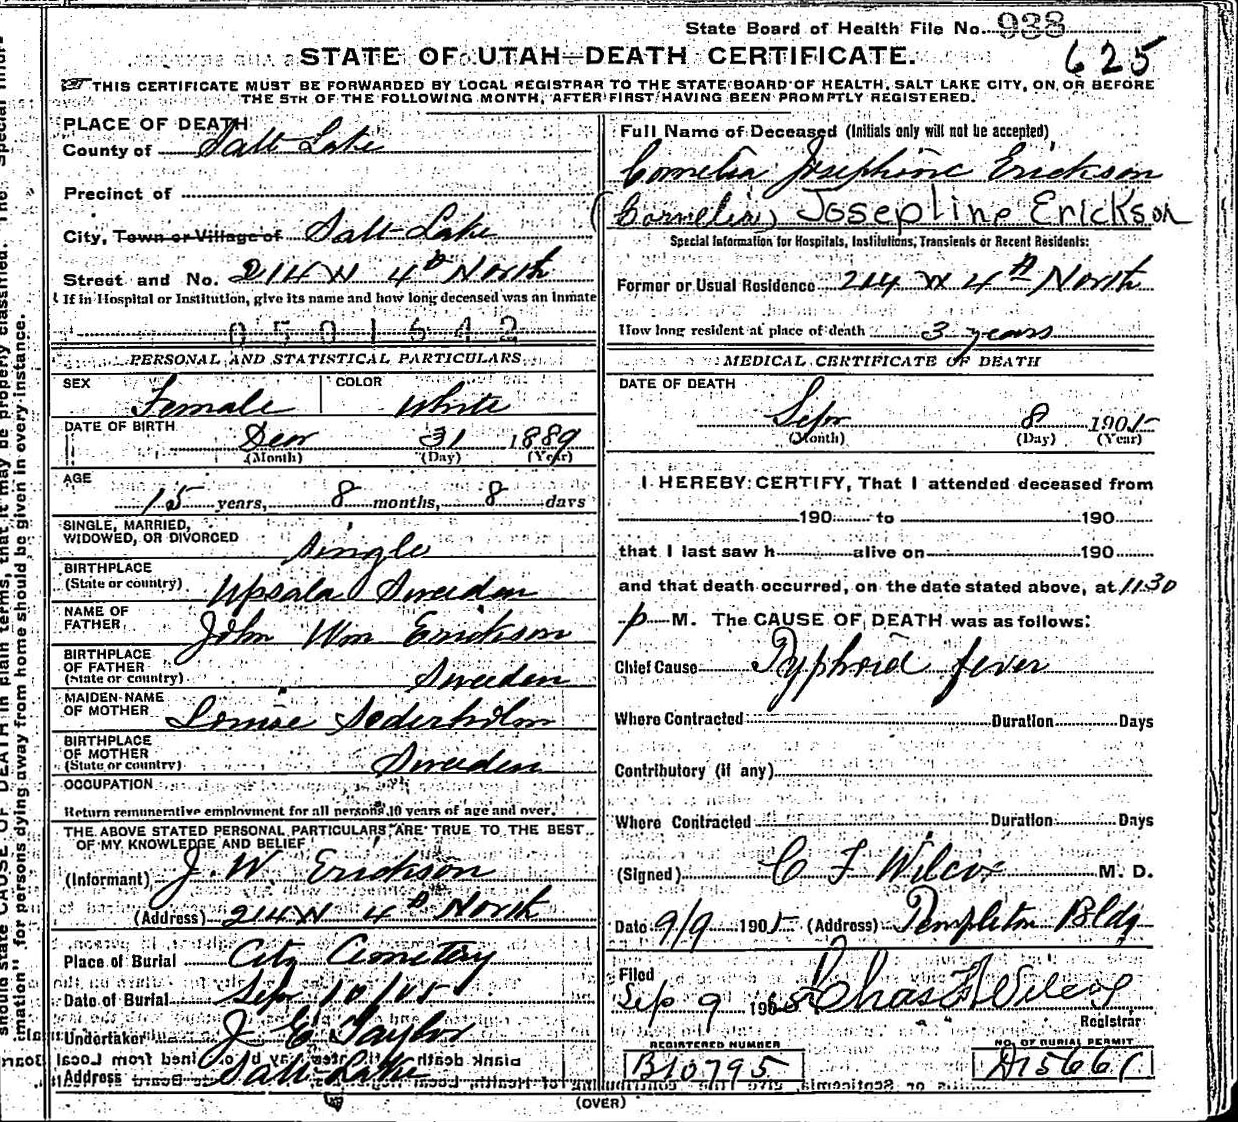 State Board of Health File No. 938
625
STATE OF UTAH—DEATH CERTIFICATE.
THIS CERTIFICATE MUST BE FORWARDED BY LOCAL REGISTRAR TO THE STATE BOARD OF HEALTH, SALT LAKE CITY, ON OR BEFORE
THE 5TH OF THE FOLLOWING MONTH, AFTER FIRST HAVING BEEN PROMPTLY REGISTERED.
PLACE OF DEATH
County of Salt Lake
Precinct of
City, Town or Village of Salt Lake
Street and No. 214 W 4th North
If in Hospital or Institution, give its name and how long deceased was an inmate
0501642
PERSONAL AND STATISTICAL PARTICULARS
SEX Female COLOR White
DATE OF BIRTH Decr 31 1889
(Month) (Day) (Year)
AGE
15 years, 8 months, 8 days
SINGLE, MARRIED,
WIDOWED, OR DIVORCED Single
BIRTHPLACE
(State or country) Upsala Sweeden
NAME OF
FATHER John Wm Erickson
BIRTHPLACE
OF FATHER
(State or country) Sweeden
MAIDEN NAME
OF MOTHER Lomise Soderholm
BIRTHPLACE
OF MOTHER
(State or country) Sweeden
OCCUPATION
Return remunerative employment for all persons 10 years of age and over.
THE ABOVE STATED PERSONAL PARTICULARS ARE TRUE TO THE BEST
OF MY KNOWLEDGE AND BELIEF
(Informant) J. W Erickson
(Address) 214 W 4th North
Place of Burial City Cemetery
Date of Burial Sep 10/05
Undertaker J E Taylor
Address Salt Lake
Full Name of Deceased (Initials only will not be accepted)
Cornelia Josephine Erickson
(Cornelia) Josepline Erickson
Special Information for Hospitals, Institutions, Transients or Recent Residents:
Former or Usual Residence 214 W 4th North
How long resident at place of death 3 years
MEDICAL CERTIFICATE OF DEATH
DATE OF DEATH
Sepr 8 1905
(Month) (Day) (Year)
I HEREBY CERTIFY, That I attended deceased from
190 to 190
that I last saw h alive on 190
and that death occurred, on the date stated above, at 11.30
p M. The CAUSE OF DEATH was as follows:
Chief Cause Typhoid fever
Where Contracted Duration Days
Contributory (if any)
Where Contracted Duration Days
(Signed) C F Wilcox M. D.
Date 9/9 1905 (Address) Templeton Bldg
Filed
Sep 9 1905 Chas F Wilcox
Registrar
REGISTERED NUMBER
B10795
NO. OF BURIAL PERMIT
D15661
(OVER)